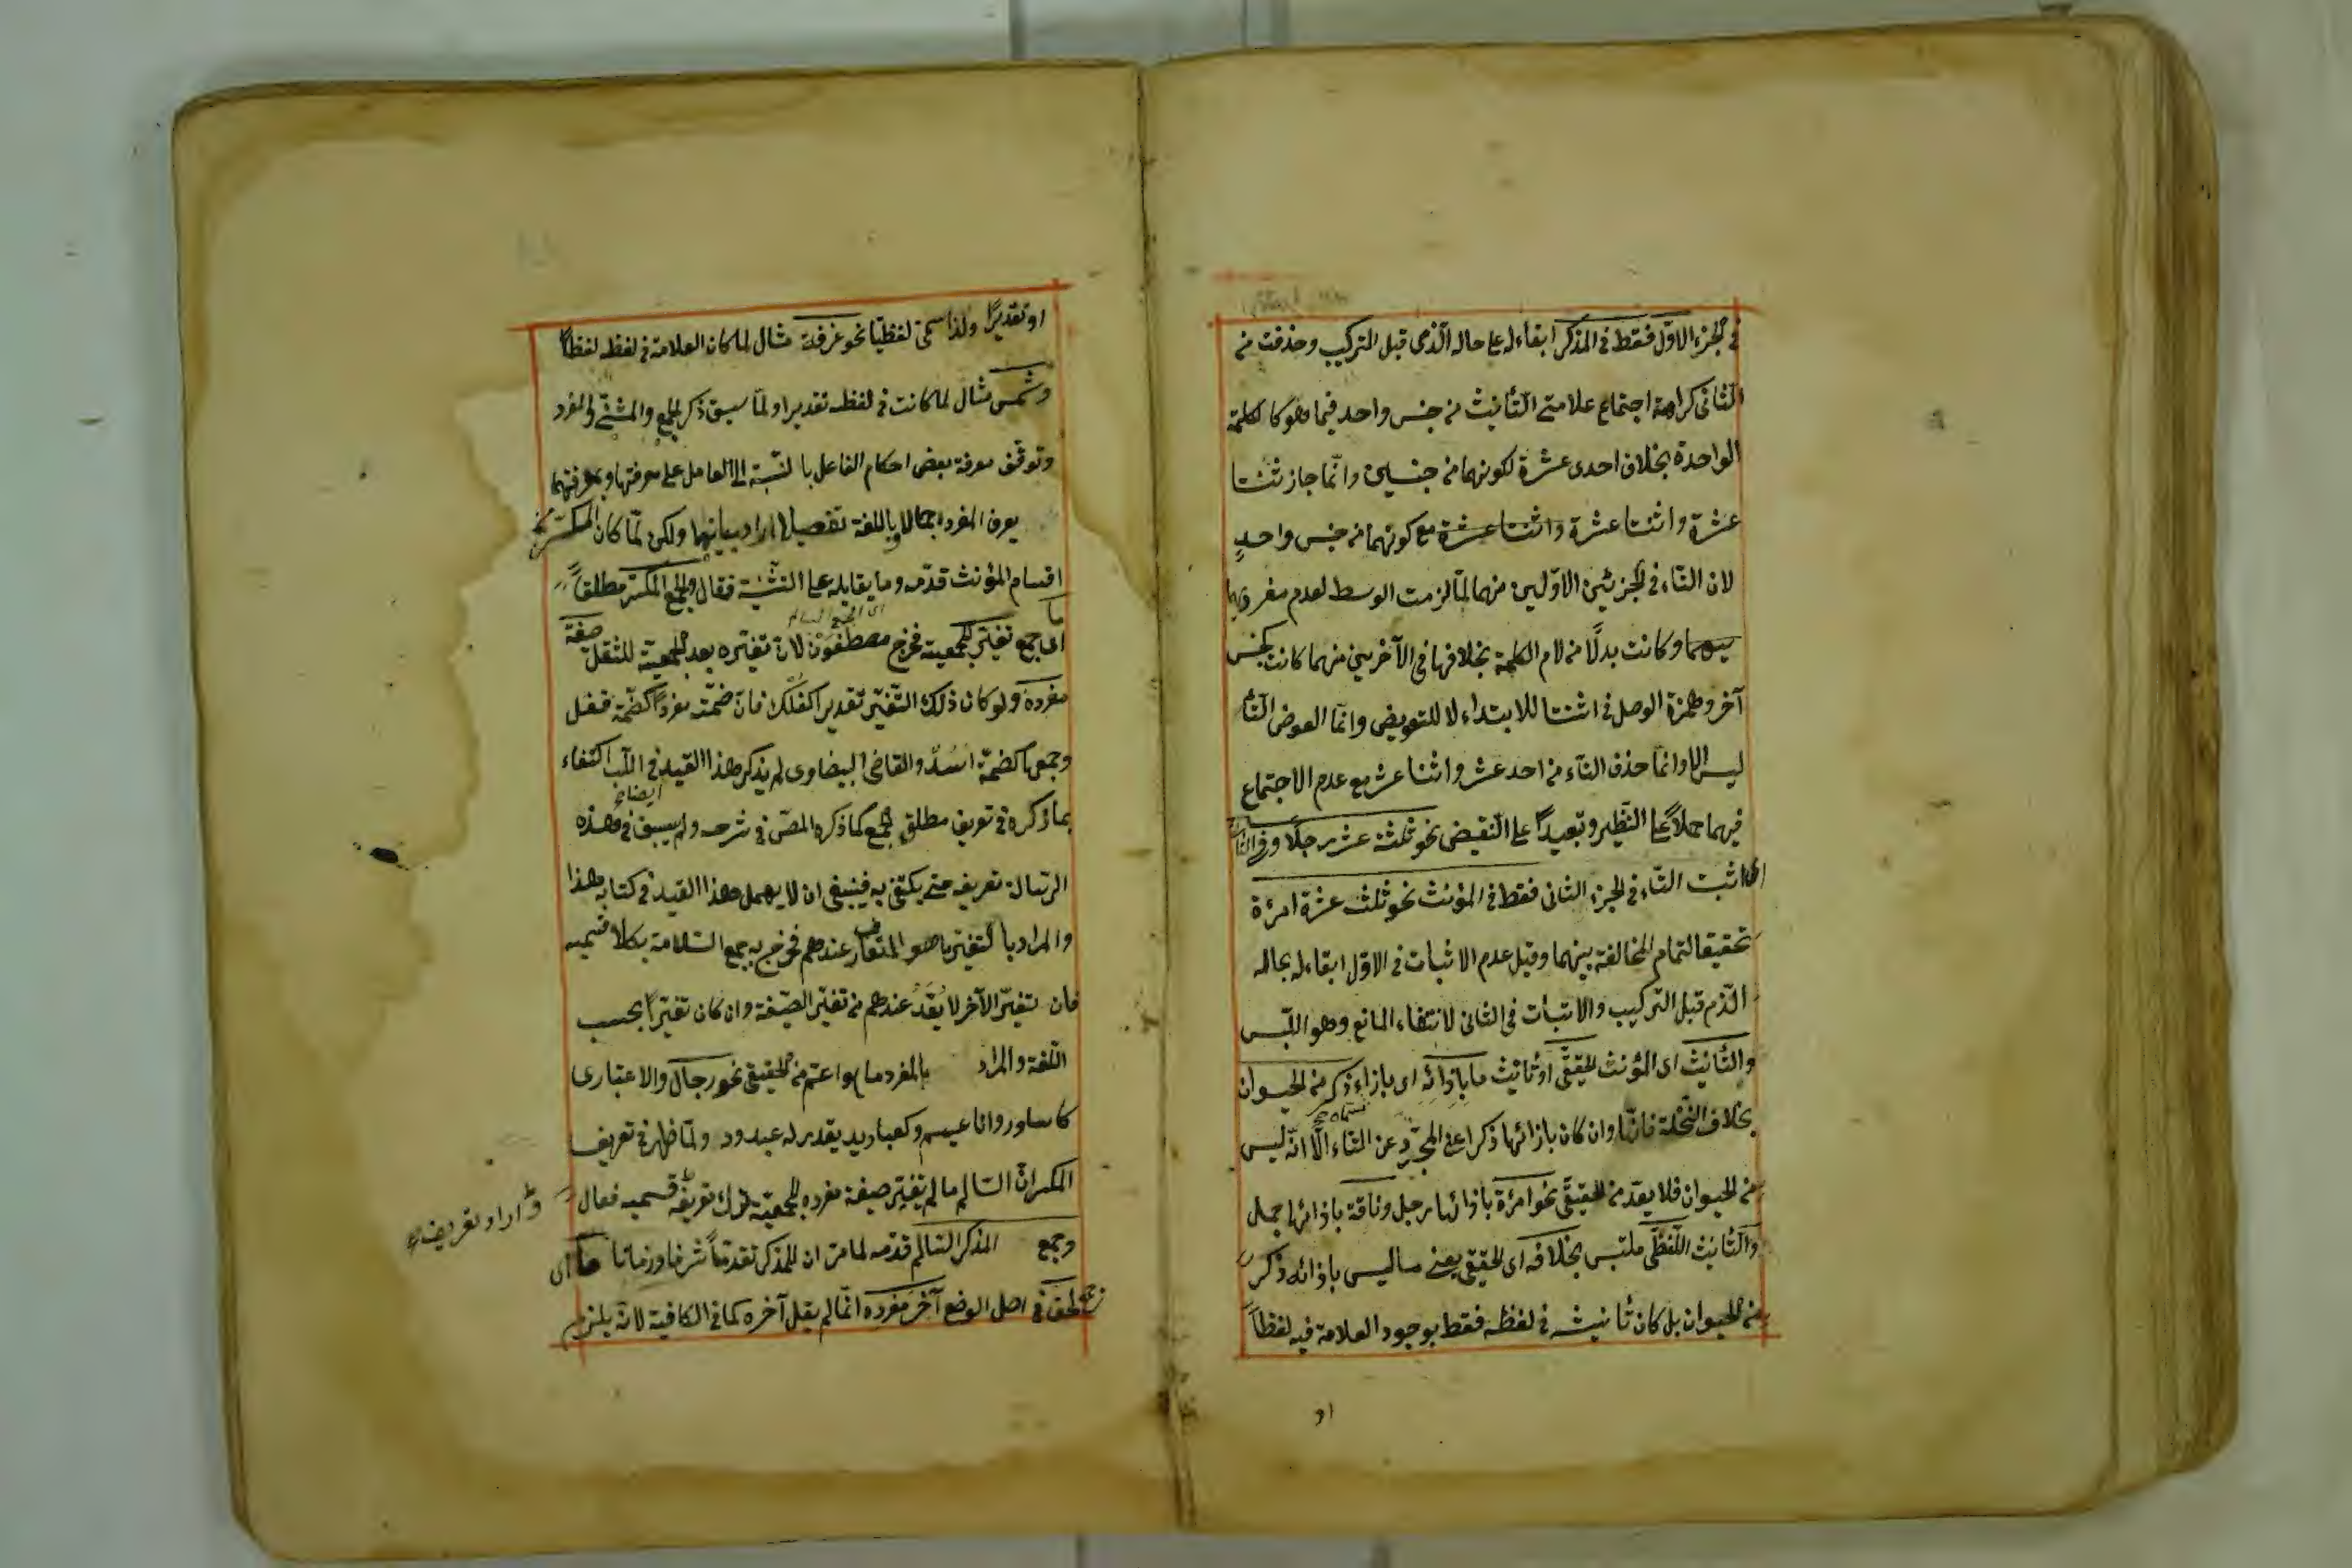 في الجزء الاوّل فقط في المذكر ابقاء له على حاله الّذي قبل التركيب وحذفت من
الثاني كراهة اجتماع علامتي التأنيث من جنس واحد فيما هو كالكلمة
الواحدة بخلاف احدى عشرة لكونهما من جنسين وانّما جاز ثنتا
عشرة واثنتا عشرة واثنتا عشرة مع كونهما من جنس واحدٍ
لان التاء في الجزئين الاوّلين منهما لمّا لزمت الوسط لعدم
وكانت بدلًا من لام الكلمة بخلافها في الآخرين منهما كانت كجنس
آخر وهمزة الوصل في اثنتا للابتداء لا للتعويض وانّما العوض التاء
ليس الا وانّما حذف التاء من احد عشر واثنا عشر مع عدم الاجتماع
فيهما حملاً على النظير وتبعيدًا على النقيض نحو ثلثة عشر رجلًا
اى اثبت التاء في الجزء الثاني فقط في المؤنث نحو ثلث عشرة امرأة
تحقيقا لتمام المخالفة بينهما وقيل عدم الاثبات في الاوّل ابقاء له بحاله
الّذي قبل التركيب والاثبات في الثاني لانتفاء المانع وهو اللبس
والتأنيث اى المؤنث الحقيقّي او تأنيث ما بازائه اى بازاء ذكر من الحيوان
بخلاف النّخلة فانّها وان كان بازائها ذكر اعني المجرّد عن التاء الّا انّه ليس
من الحيوان فلا يعد من الحقيقّي نحو امرأة بازائها رجل وناقة بازائها جمل
والتأنيث اللّفظّي ملتبس بخلافه اى الحقيقي يعني ما ليس بازائه ذكر
من الحيوان بل كان تأنيثه في لفظه فقط بوجود العلامة فيه لفظاً
او
او تقديرًا ولذا سمّى لفظيًّا نحو غرفة مثال لما كان العلامة في لفظه لفظًا
وشمس مثال لما كانت في لفظه تقديرا ولمّا سبق ذكر الجمع والمثنّى والمفرد
وتوقّف معرفة بعض احكام الفاعل بالنّسبة الى العامل على معرفتها وبمعرفتهما
يعرف المفرد اجمالا تفصيلا اراد بيانهما ولكن لمّا كان المكسّر من
اقسام المؤنث قدّمه وما يقابله على التثنية فقال والجمع المكسّر مطلقاً
اى الجمع السالم
ما
اى جمع تغيّر للجمعية فخرج مصطفون لانّ تغيّره بعد الجمعية للثقل صيغة
مفرده ولو كان ذلك التّغيّر تقديرا كفلك فانّ ضمّته مفردًا كضمّة قفل
وجمعًا كضمّة اسد والقاضي البيضاوى لم يذكر هذا القيد في اللّب اكتفاء
بما ذكره في تعريف مطلق الجمع كما ذكره المص في شرحه ولم يسبق في هذه
الرسالة تعريفه حتى يكتفى به فينبغى ان لا يهمل هذا القيد في كتابه هذا
والمراد بالتغيّر ما هو المتعارف عندهم فخرج به جمع السّلامة بكلا قسميه
فان تغيّر الآخر لا يعدّ عندهم من تغيّر الصّيغة وان كان تغيّرًا بحسب
اللّغة والمراد بالمفرد ما هو اعم من الحقيقي نحو رجال والاعتبارى
كاساور واناعيم وكعباديد يقدر له عبدود ولمّا ظهر في تعريف
المكسّر انّ السّالم ما لم يتغيّر صيغة مفرده للجمعية ترك تعريفه قسميه فقال
واراد تعريف
وجمع المذكر السّالم قدّمه لما مرّ ان للمذكر تقدّمًا شرفا وزمانا ما اى
جمع لحق في اصل الوضع آخر مفرده انّما لم يقل آخره كما في الكافية لانّه يلزم